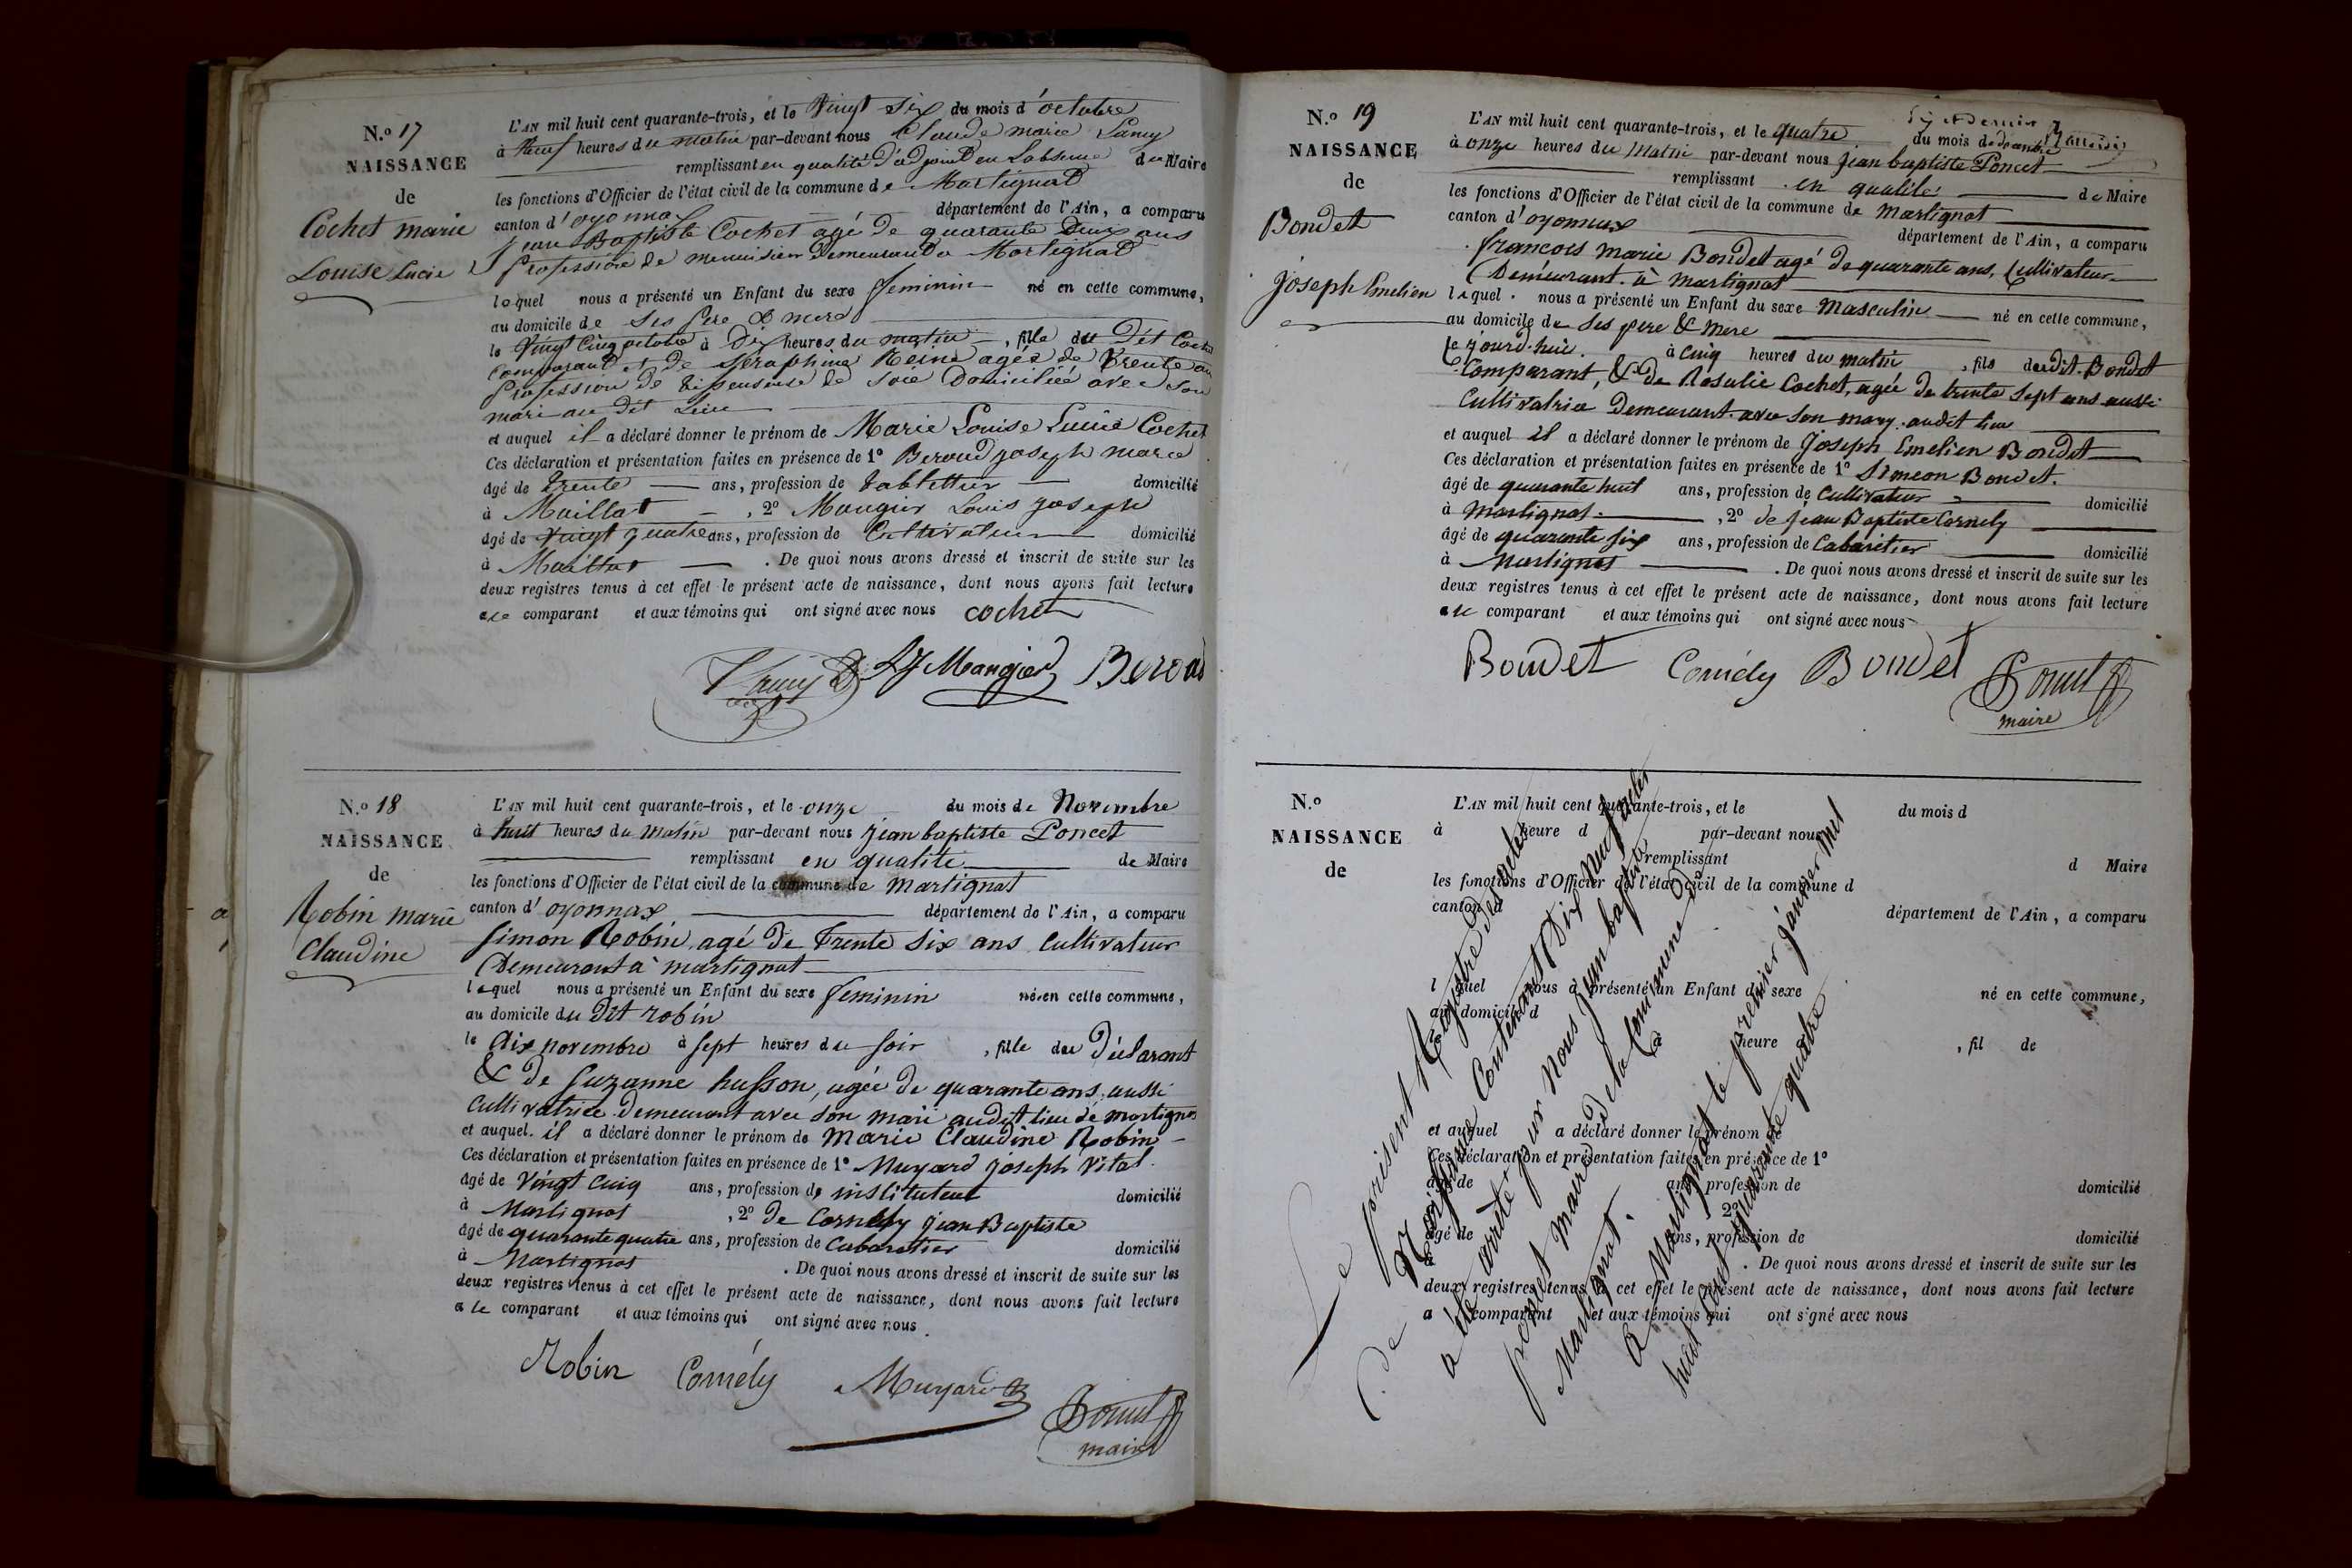 N.o 17
NAISSANCE
de
Cochet marie
Louise Lucie
L'AN mil huit cent quarante-trois, et le Vingt six du mois d'octobre
à neuf heures du matin par-devant nous Claude marie Lamy
remplissant en qualité d'adjoint en Labsence du Maire
les fonctions d'Officier de l'état civil de la commune de Martignat
canton d'oyonnax département de l'Ain, a comparu
Jean Baptiste Cochet agé de quarante Deux ans
profession de menuisier Demeurant a Martignat
lequel nous a présenté un Enfant du sexe feminin né en cette commune,
au domicile de ses pere & mere
le Vingt Cinq octobre à Dix heures du matin, fille du Dit Cochet
Comparant et de Séraphine Reine agée de trente ans
profession de de Soie Domiciliée avec Son
mari au dit Lieu
et auquel il a déclaré donner le prénom de Marie Louise Lucie Cochet
Ces déclaration et présentation faites en présence de 1o Beroud joseph marie
âgé de trente ans, profession de tablettier domicilié
à Maillat, 2o Mougier Louis joseph
âgé de vingt quatre ans, profession de Cultivateur domicilié
à Maillat. De quoi nous avons dressé et inscrit de suite sur les
deux registres tenus à cet effet le présent acte de naissance, dont nous avons fait lecture
au comparant et aux témoins qui ont signé avec nous cochet
Lamy LJ Mangier Beroud
N.o 18
NAISSANCE
de
Robin marie
Claudine
L'AN mil huit cent quarante-trois, et le onze du mois de Novembre
à huit heures du matin par-devant nous jean baptiste Poncet
remplissant en qualité de Maire
les fonctions d'Officier de l'état civil de la commune de Martignat
canton d'oyonnax département de l'Ain, a comparu
Simon Robin, agé de trente six ans cultivateur
Demeurant à martignat
lequel nous a présenté un Enfant du sexe feminin né en cette commune,
au domicile du Dit robin
le dix novembre à sept heures du soir, fille du Déclarant
& de Suzanne husson, agée de quarante ans, aussi
Cultivatrice demeurant avec son mari audit lieu de martignat
et auquel il a déclaré donner le prénom de Marie Claudine Robin
Ces déclaration et présentation faites en présence de 1o Muyard joseph Vital
âgé de Vingt cinq ans, profession de instituteur domicilié
à Martignat, 2o de Cornély jean Baptiste
âgé de quarante quatre ans, profession de Cabaretier domicilié
à Martignat. De quoi nous avons dressé et inscrit de suite sur les
deux registres tenus à cet effet le présent acte de naissance, dont nous avons fait lecture
a le comparant et aux témoins qui ont signé avec nous.
Robin Cornély Muyard Poncet
maire
N.o 19
NAISSANCE
de
Bondet
joseph Emelien
L'AN mil huit cent quarante-trois, et le quatre du mois de decembre
à onze heures du matin par-devant nous jean baptiste Poncet
remplissant en qualité de Maire
les fonctions d'Officier de l'état civil de la commune de Martignat
canton d'oyonnax département de l'Ain, a comparu
francois marie Bondet agé de quarante ans, Cultivateur
Demeurant à martignat
lequel nous a présenté un Enfant du sexe Masculin né en cette commune,
au domicile de ses pere & mere
le jourd'hui à cinq heures du matin, fils du dit Bondet
Comparant, & de Rosalie Cochet, agée de trente sept ans aussi
Cultivatrice Demeurant avec son mary audit lieu
et auquel il a déclaré donner le prénom de Joseph Emelien Bondet
Ces déclaration et présentation faites en présence de 1o Simeon Bondet.
âgé de quarante huit ans, profession de Cultivateur domicilié
à Martignat, 2o de jean Baptiste Cornély
âgé de quarante six ans, profession de Cabaretier domicilié
à Martignat. De quoi nous avons dressé et inscrit de suite sur les
deux registres tenus à cet effet le présent acte de naissance, dont nous avons fait lecture
a le comparant et aux témoins qui ont signé avec nous
Bondet Cornély Bondet Poncet
maire
N.o
NAISSANCE
de
L'AN mil huit cent quarante-trois, et le du mois d
à heure d par-devant nous
remplissant d Maire
les fonctions d'Officier de l'état civil de la commune d
canton d département de l'Ain, a comparu
l quel nous a présenté un Enfant du sexe né en cette commune,
au domicile d
le à heure, fil de
et auquel a déclaré donner le prénom de
Ces déclaration et présentation faites en présence de 1o
âgé de ans, profession de domicilié
à 2o
âgé de ans, profession de domicilié
à. De quoi nous avons dressé et inscrit de suite sur les
deux registres tenus à cet effet le présent acte de naissance, dont nous avons fait lecture
a comparant et aux témoins qui ont signé avec nous
Le présent Registre des actes
de Naissance Contenant Dix neuf actes
a été arrêté par nous jean baptiste
poncet maire de la Commune de
Martignat.
A Martignat le premier janvier mil
huit cent quarante quatre